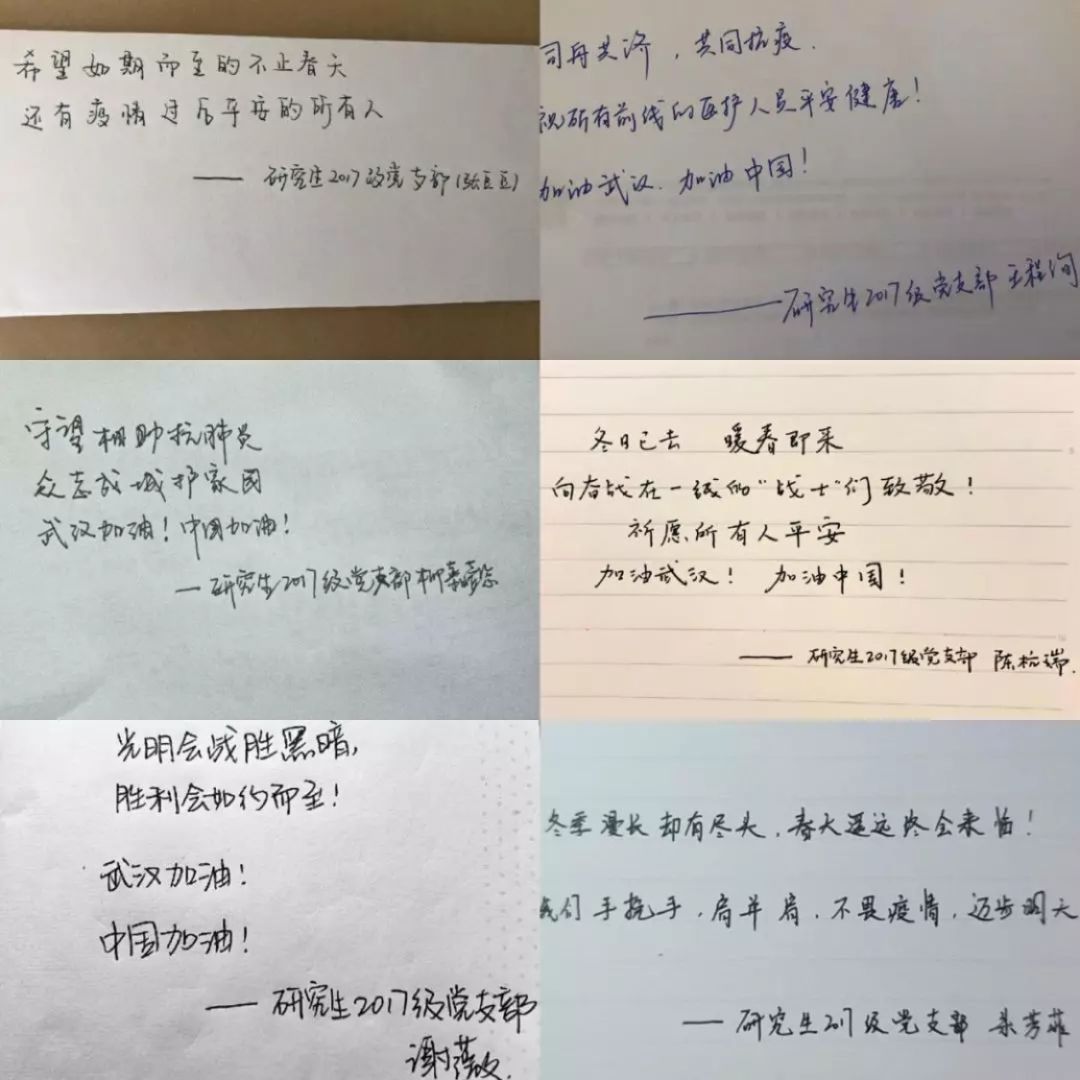 希望如期而至的不止春天
还有疫情过后平安的所有人
—— 研究生2017级党支部(张豆豆)
同舟共济，共同抗疫.
祝所有前线的医护人员平安健康!
加油武汉. 加油中国!
——研究生2017级党支部 王程洵
守望相助抗肺炎
众志成城护家国
武汉加油! 中国加油!
—研究生2017级党支部
冬日已去 暖春即来
向奋战在一线的"战士"们致敬!
祈愿所有人平安
加油武汉! 加油中国!
—— 研究生2017级党支部 陈杭瑞.
光明会战胜黑暗,
胜利会如约而至!
武汉加油!
中国加油!
—— 研究生2017级党支部
谢薇
冬季漫长却有尽头, 春天遥远终会来临!
我们手挽手, 肩并肩, 不畏疫情, 迈步明天
—— 研究生2017级党支部 芳菲